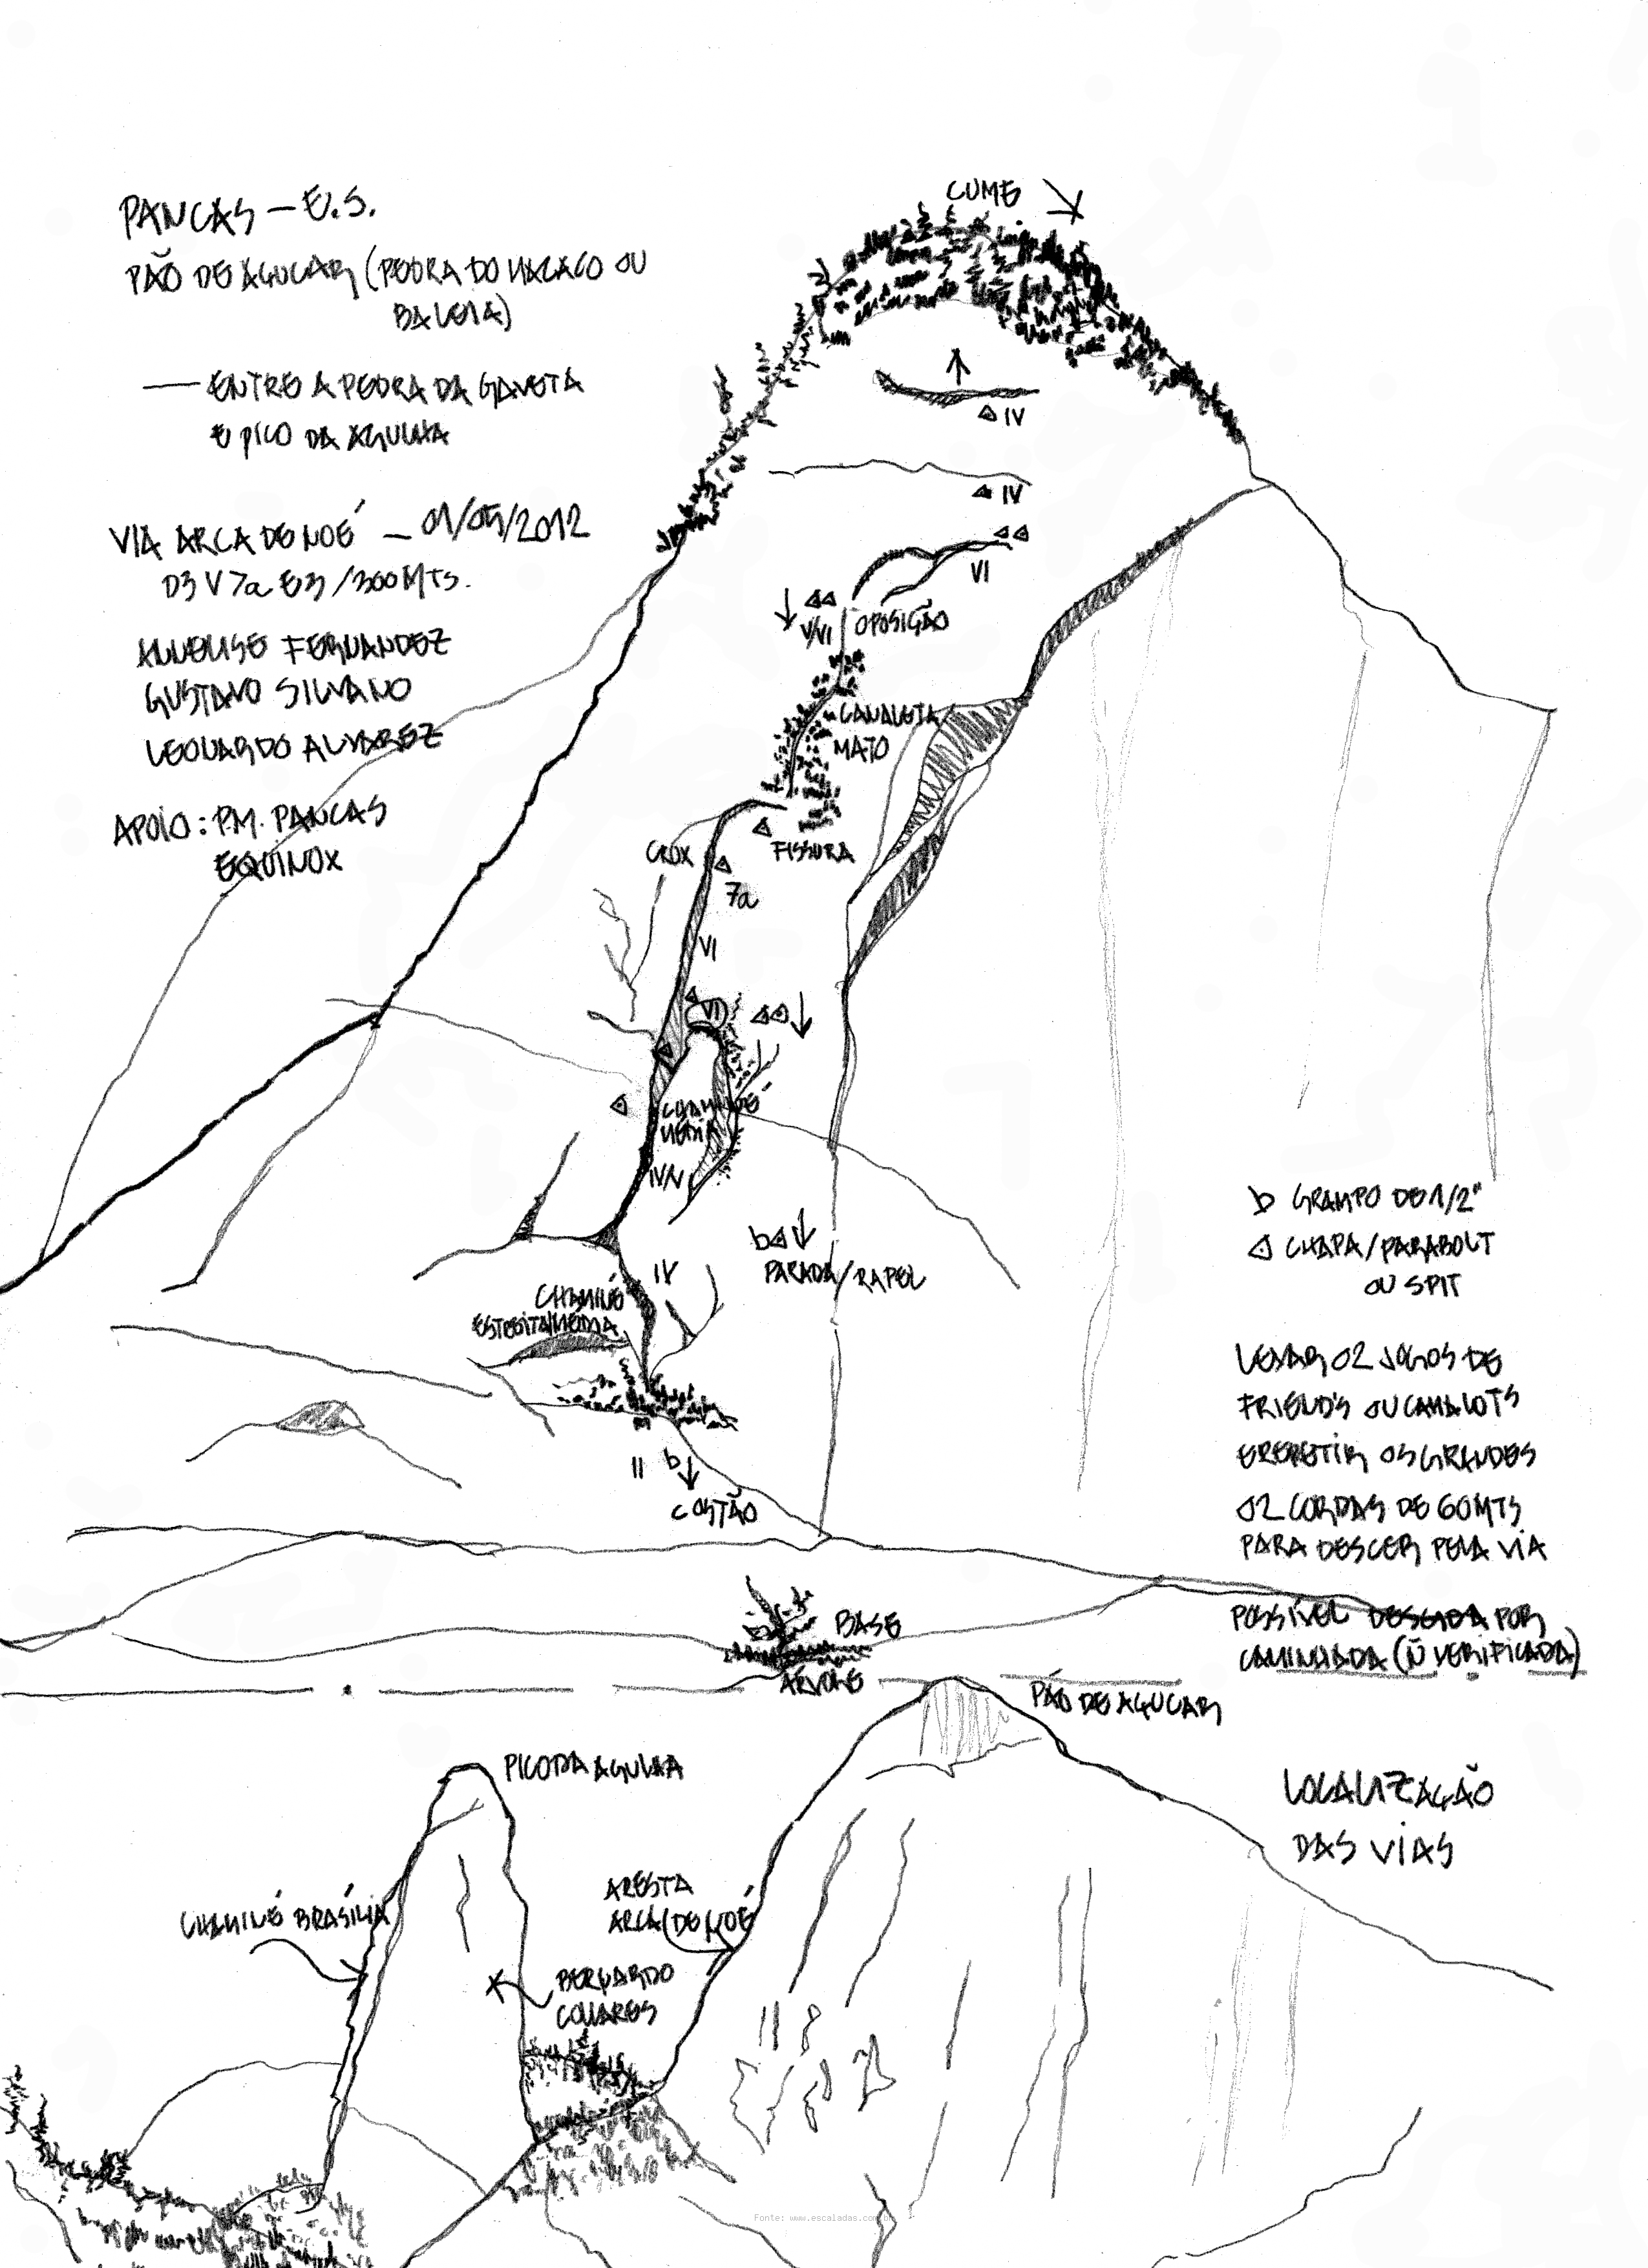 PANCAS – E.S.
PÃO DE AÇUCAR (PEDRA DO MACACO OU
BALEIA)
— ENTRE A PEDRA DA GAVETA
E PICO DA AGULHA
VIA ARCA DE NOÉ – 01/05/2012
D3 V 7a E3 /300 MTS.
ANNELISE FERNANDEZ
GUSTAVO SILVANO
LEONARDO ALVAREZ
APOIO: P.M. PANCAS
EQUINOX
CUME
IV
IV
VI
V/VI
OPOSIÇÃO
CANALETA
MATO
CRUX
FISSURA
7a
VI
VI
CHAMINÉ
MÉDIA
IV/V
b
PARADA/RAPEL
IV
CHAMINÉ
ESTREITA/MÉDIA
II
b
COSTÃO
BASE
ÁRVORE
b GRAMPO DE 1/2"
CHAPA/PARABOLT
OU SPIT
LEVAR 02 JOGOS DE
FRIEND'S OU CAMALOTS
E REPETIR OS GRANDES
02 CORDAS DE 60 MTS
PARA DESCER PELA VIA
POSSÍVEL DESCIDA POR
CAMINHADA (Ñ VERIFICADA)
PÃO DE AÇUCAR
PICO DA AGULHA
LOCALIZAÇÃO
DAS VIAS
CHAMINÉ BRASÍLIA
ARESTA
ARCA DE NOÉ
BERNARDO
COLLARES
Fonte: www.escaladas.com.br